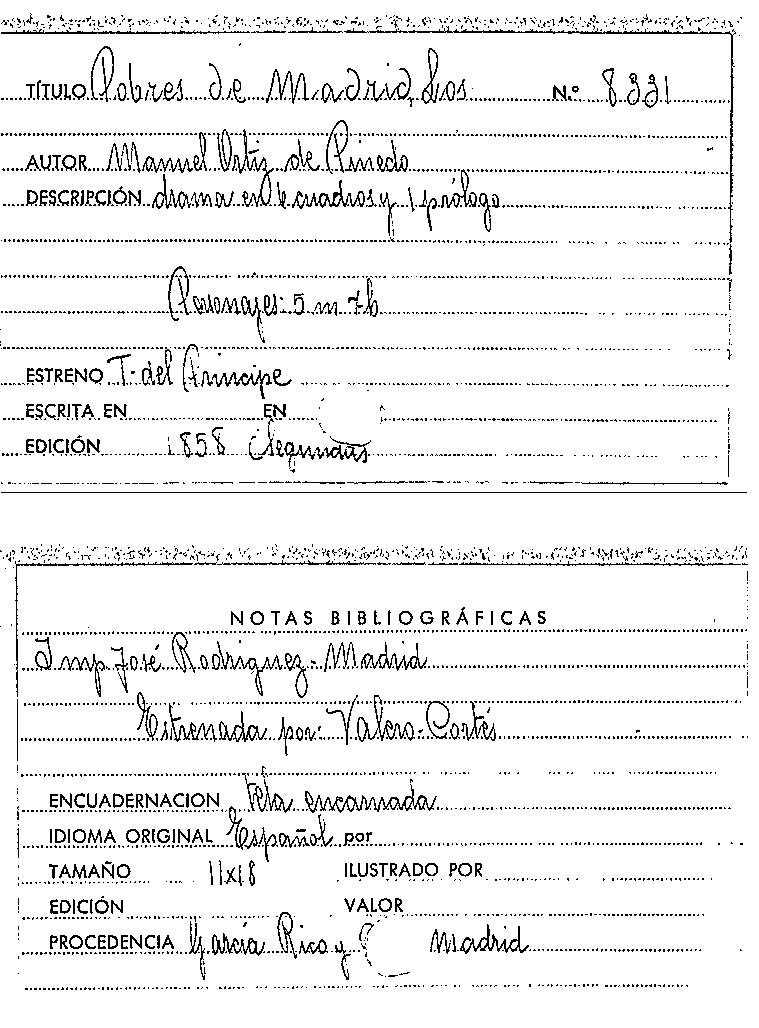 TÍTULO Pobres de Madrid, Los N.º 8331
AUTOR Manuel Ortiz de Pinedo
DESCRIPCIÓN drama en 6 cuadros y 1 prólogo
Personajes: 5 m 7 h
ESTRENO T. del Príncipe
ESCRITA EN EN
EDICIÓN 1858 Segundas
NOTAS BIBLIOGRÁFICAS
Imp. José Rodriguez - Madrid
Estrenada por: Valero - Cortés
ENCUADERNACION tela encarnada
IDIOMA ORIGINAL Español por
TAMAÑO 11x18 ILUSTRADO POR
EDICIÓN VALOR
PROCEDENCIA García Rico y Madrid